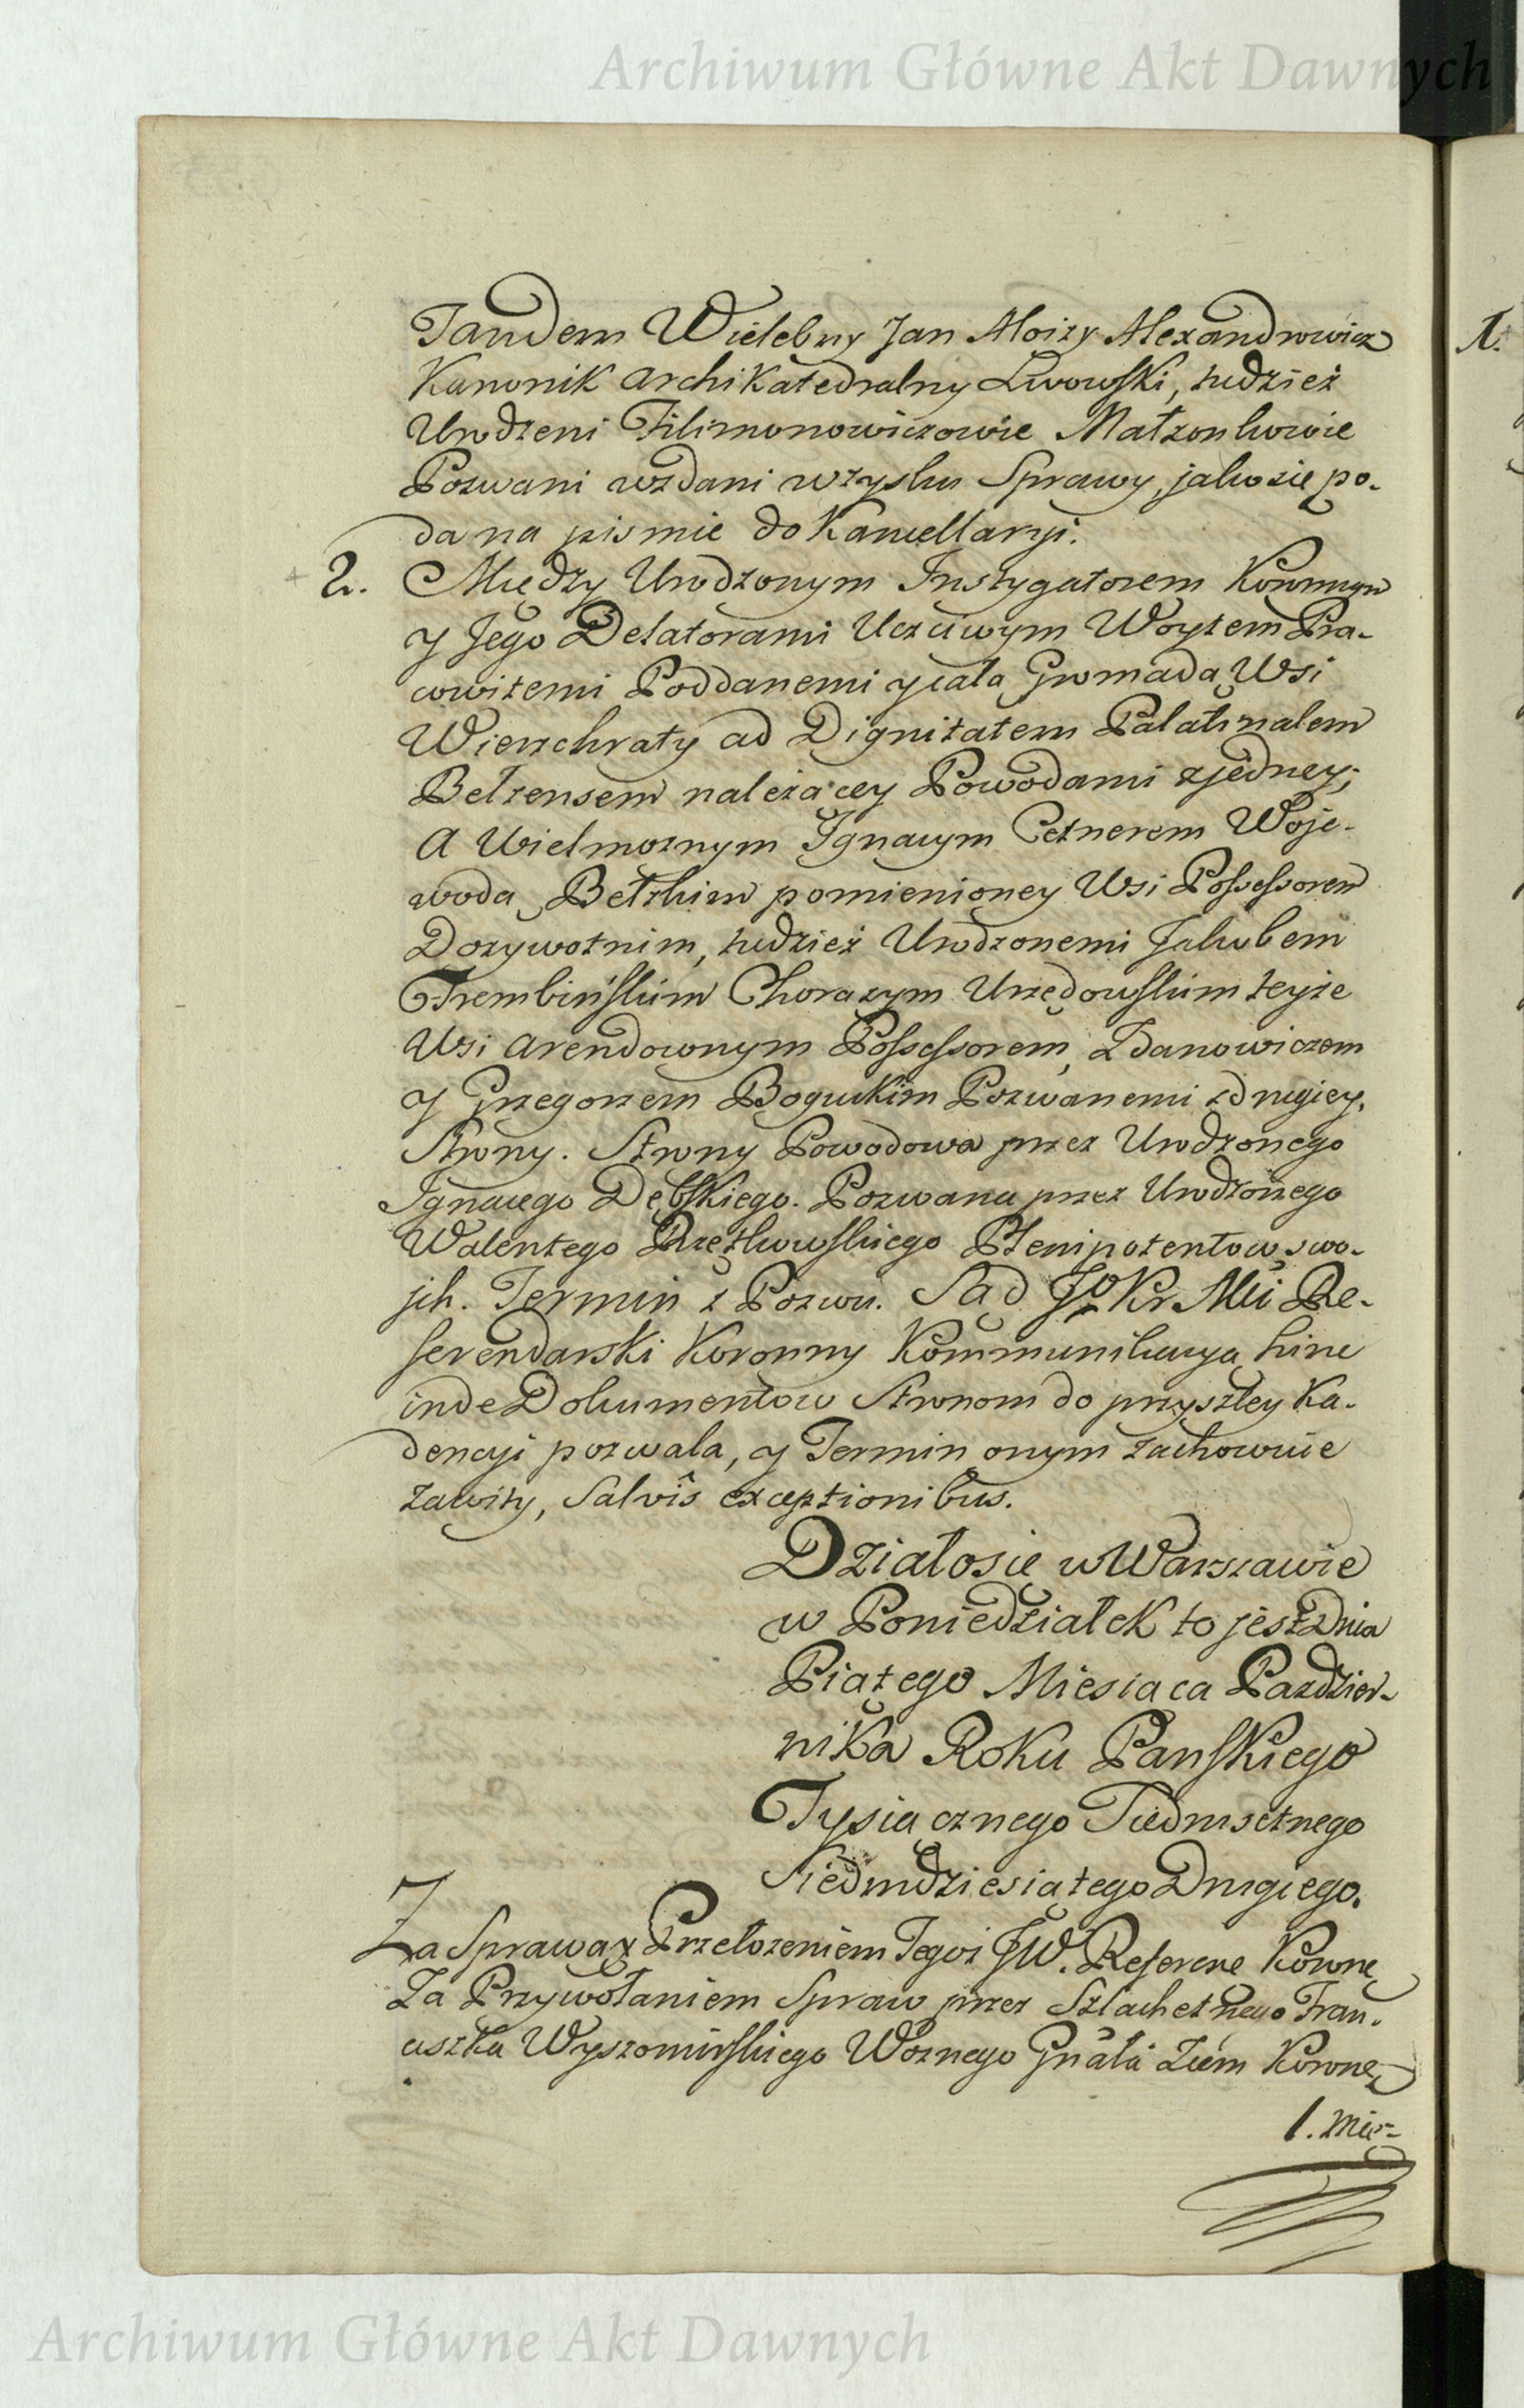 Archiwum Główne Akt Dawnych
Tandem Wielebny Jan Aloizy Alexandrowicz
Kanonik Archikatedralny Lwowski, tudzież
Urodzeni Filimonowiczowie Małzonkowie
Pozwani wzdani wzysku Sprawy, jako się po-
da na pismie do Kancellaryi.
2. Między Urodzonym Instygatorem Koronnym
y Jego Delatorami Uczciwym Woytem Pra-
cowitemi Poddanemi y całą Gromadą Wsi
Wierzchraty ad Dignitatem Palatinalem
Belzensem należącey Powodami z jedney;
A Wielmoznym Ignacym Cetnerem Woje-
wodą Bełzkim pomienioney Wsi Possessorem
Dozywotnim, tudzież Urodzonemi Jakubem
Trembińskim Chorązym Urzędowskim teyże
Wsi Arendownym Possessorem, Zdanowiczem
y Grzegorzem Boguckim Pozwanemi z drugiey
Strony. Strony Powodowa przez Urodzonego
Ignacego Dębskiego. Pozwana przez Urodzonego
Walentego Rzętkowskiego Plenipotentow swo-
jch. Termin z Pozwu. Sąd JO Kr Mci Re-
ferendarski Koronny Kommunikacyą hinc
inde Dokumentow Stronom do przyszłey Ka-
dencyi pozwala, y Termin onym zachowuie
zawity, Salvîs exceptionibus.
Działo się w Warszawie
w Poniedziałek to jest Dnia
Piątego Miesiąca Pazdzier-
nika Roku Panskiego
Tysiącznego Siedmsetnego
Siedmdziesiątego Drugiego.
Za Sprawą y Przełozeniem Tegoż JW. Referene Koronne
Za Przywołaniem Spraw przez Szlachetnego Fran-
ciszka Wyszomirskiego Woznego Gnała Ziem Koronne
1. Mie-
1.
Archiwum Główne Akt Dawnych